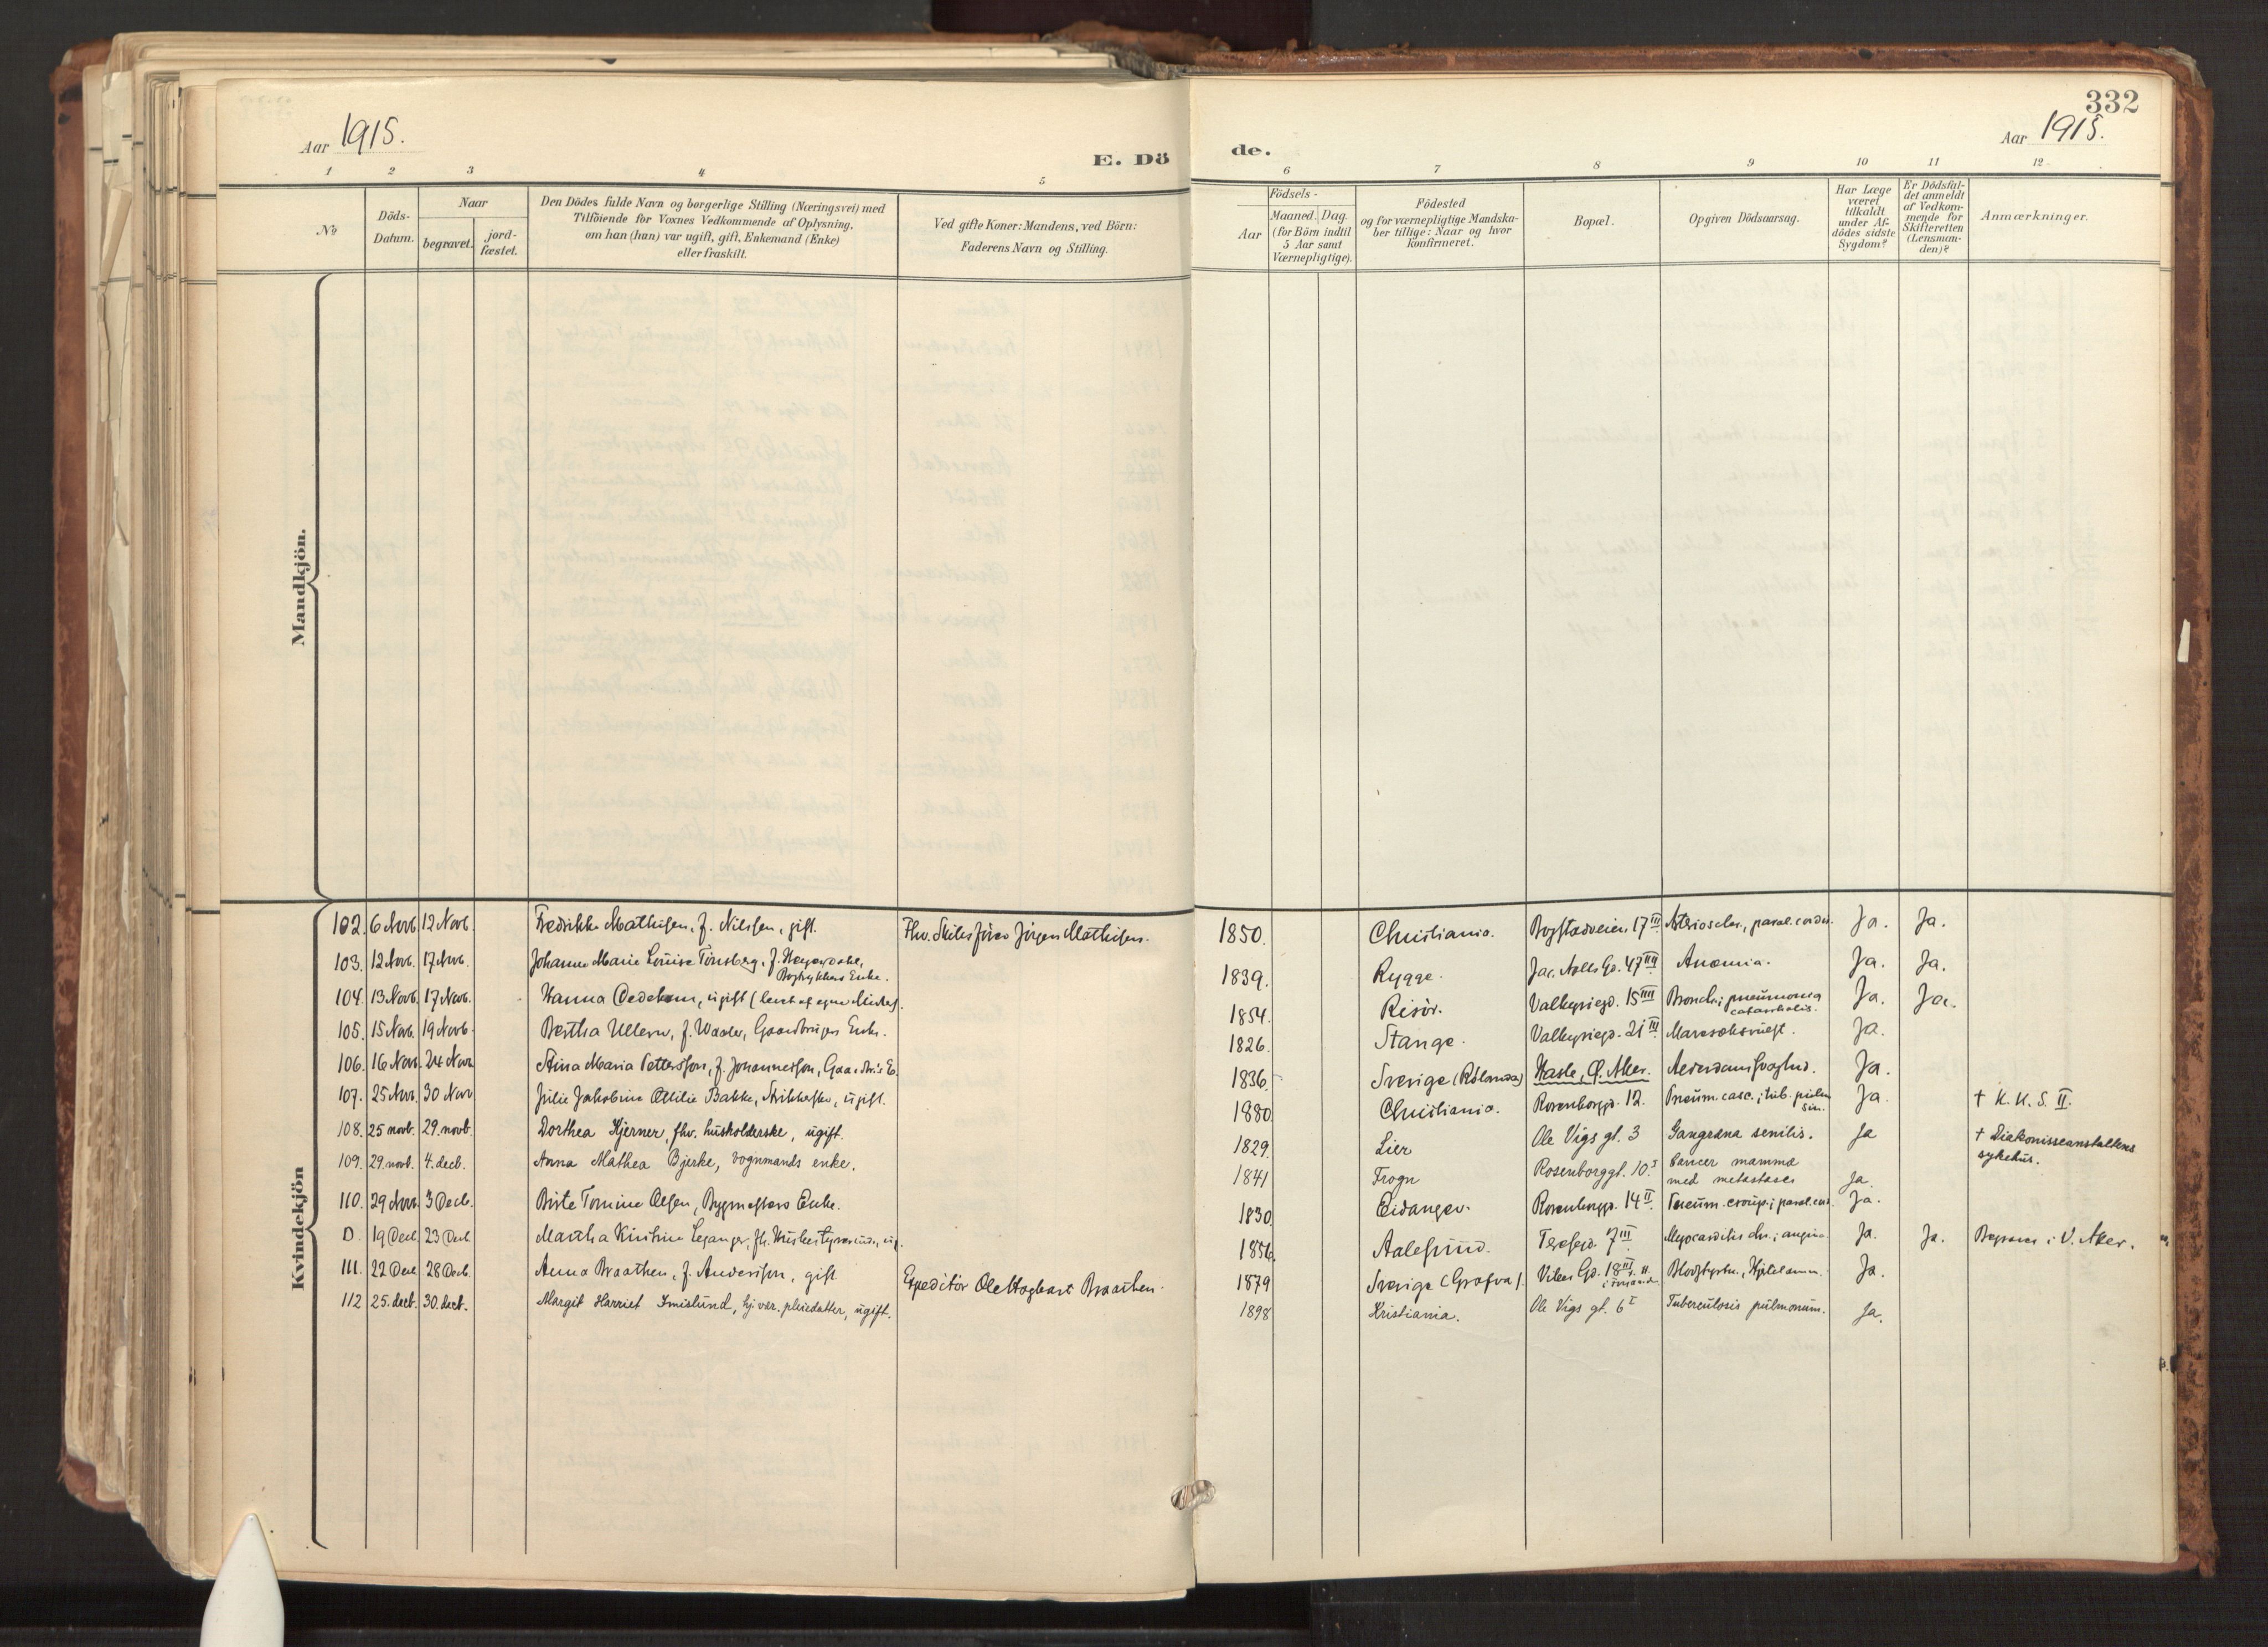 332
Aar 1915.
Aar 1915.
E. Dö
de.
1 2 3 4 5
6 7 8 9 10 11 12
No
Döds-Datum.
Naar
begravet.
jord-fæstet.
Den Dödes fulde Navn og borgerlige Stilling (Næringsvei) med
Tilföiende for Voxnes Vedkommende af Oplysning,
om han (hun) var ugift, gift, Enkemand (Enke)
eller fraskilt.
Ved gifte Koner: Mandens, ved Börn:
Faderens Navn og Stilling.
Födsels-
Aar
Maaned. Dag.
(for Börn indtil
5 Aar samt
Værnepligtige).
Födested
og for værnepligtige Mandska-
ber tillige: Naar og hvor
konfirmeret.
Bopæl.
Opgiven Dödsaarsag.
Har Læge
været
tilkaldt
under Af-
dödes sidste
Sygdom?
Er Dödsfal-
det anmeldt
af Vedkom-
mende for
Skifteretten
(Lensman-
den)?
Anmærkninger.
Mandkjön.
Kvindekjön
102. 6 Novb. 12 Novb. Fredrikke Mathisen, f. Nilssen, gift. Fhv. Jörgen Mathisen. 1850. Christiania. Bogstadveien 17 III Arterioscler., paral. cordis. Ja. Ja.
103. 12 Novb. 17 Novb. Johanne Marie Louise Tönsberg, f.
Bogtrykkers Enke. 1839. Rygge. Jac. Aalls Gd. 47 IIII Anæmia. Ja. Ja.
104. 13 Novb. 17 Novb. Hanna Oedekam, ugift (levet af egne Midler). 1854. Risör. Valkyriegd. 15 IIII Bronch.; pneumonia
catarrhalis. Ja. Ja.
105. 15 Novb. 19 Novb. Bertha Ullern, f. Waaler, Gaardbrugers Enke. 1826. Stange. Valkyriegd. 21 III Ja.
106. 16 Novb. 24 Novb. Stina Maria Pettersson, f. Johannesson, E. 1836. Sverige Hasle, Ø. Aker. Ja.
107. 25 Novb. 30 Novb Julie Jakobine Ottilie Bakke, Strikkerske, ugift. 1880 Christiania. Rosenborggd. 12. Pneum. casc.; tub. pulm
sin. Ja. † K. K. S. II.
108. 25 novb. 29. novb. Dorthea Hjerner, fhv. husholderske, ugift. 1829. Lier Ole Vigs gt. 3 Gangræna senilis. Ja † Diakonisseanstaltens
sykehus.
109. 29. novb. 4. decb. Anna Mathea Bjerke, vognmands enke. 1841 Frogn Rosenborggt. 10. I Cancer mammæ
med metastases Ja.
110. 29 Novb. 3 Decb. Birte Tomine Olsen, Bygmesters Enke. 1830. Eidanger. Rosenborggd. 14 II Pneum. croup.; paral. cord. Ja.
D. 19 Decb 23 Decb Martha Kirstine Leganger, fh. 1856. Aalesund. Teresegd. 7 III Myocarditis chr.; angina. Ja. Ja. Begraves i V. Aker.
111. 22 Decb 28 Decb. Anna Braathen, f. Andersson, gift. Expeditör Ole Hagbart Braathen. 1879 Sverige (Grafva). Vibes Gd. 18 III Ja.
112 25. decb. 30. decb. Margit Harriet Imislund, hj. vær. pleiedatter, ugift. 1898 Kristiania. Ole Vigs gt. 6 I Tuberculosis pulmonum. Ja.